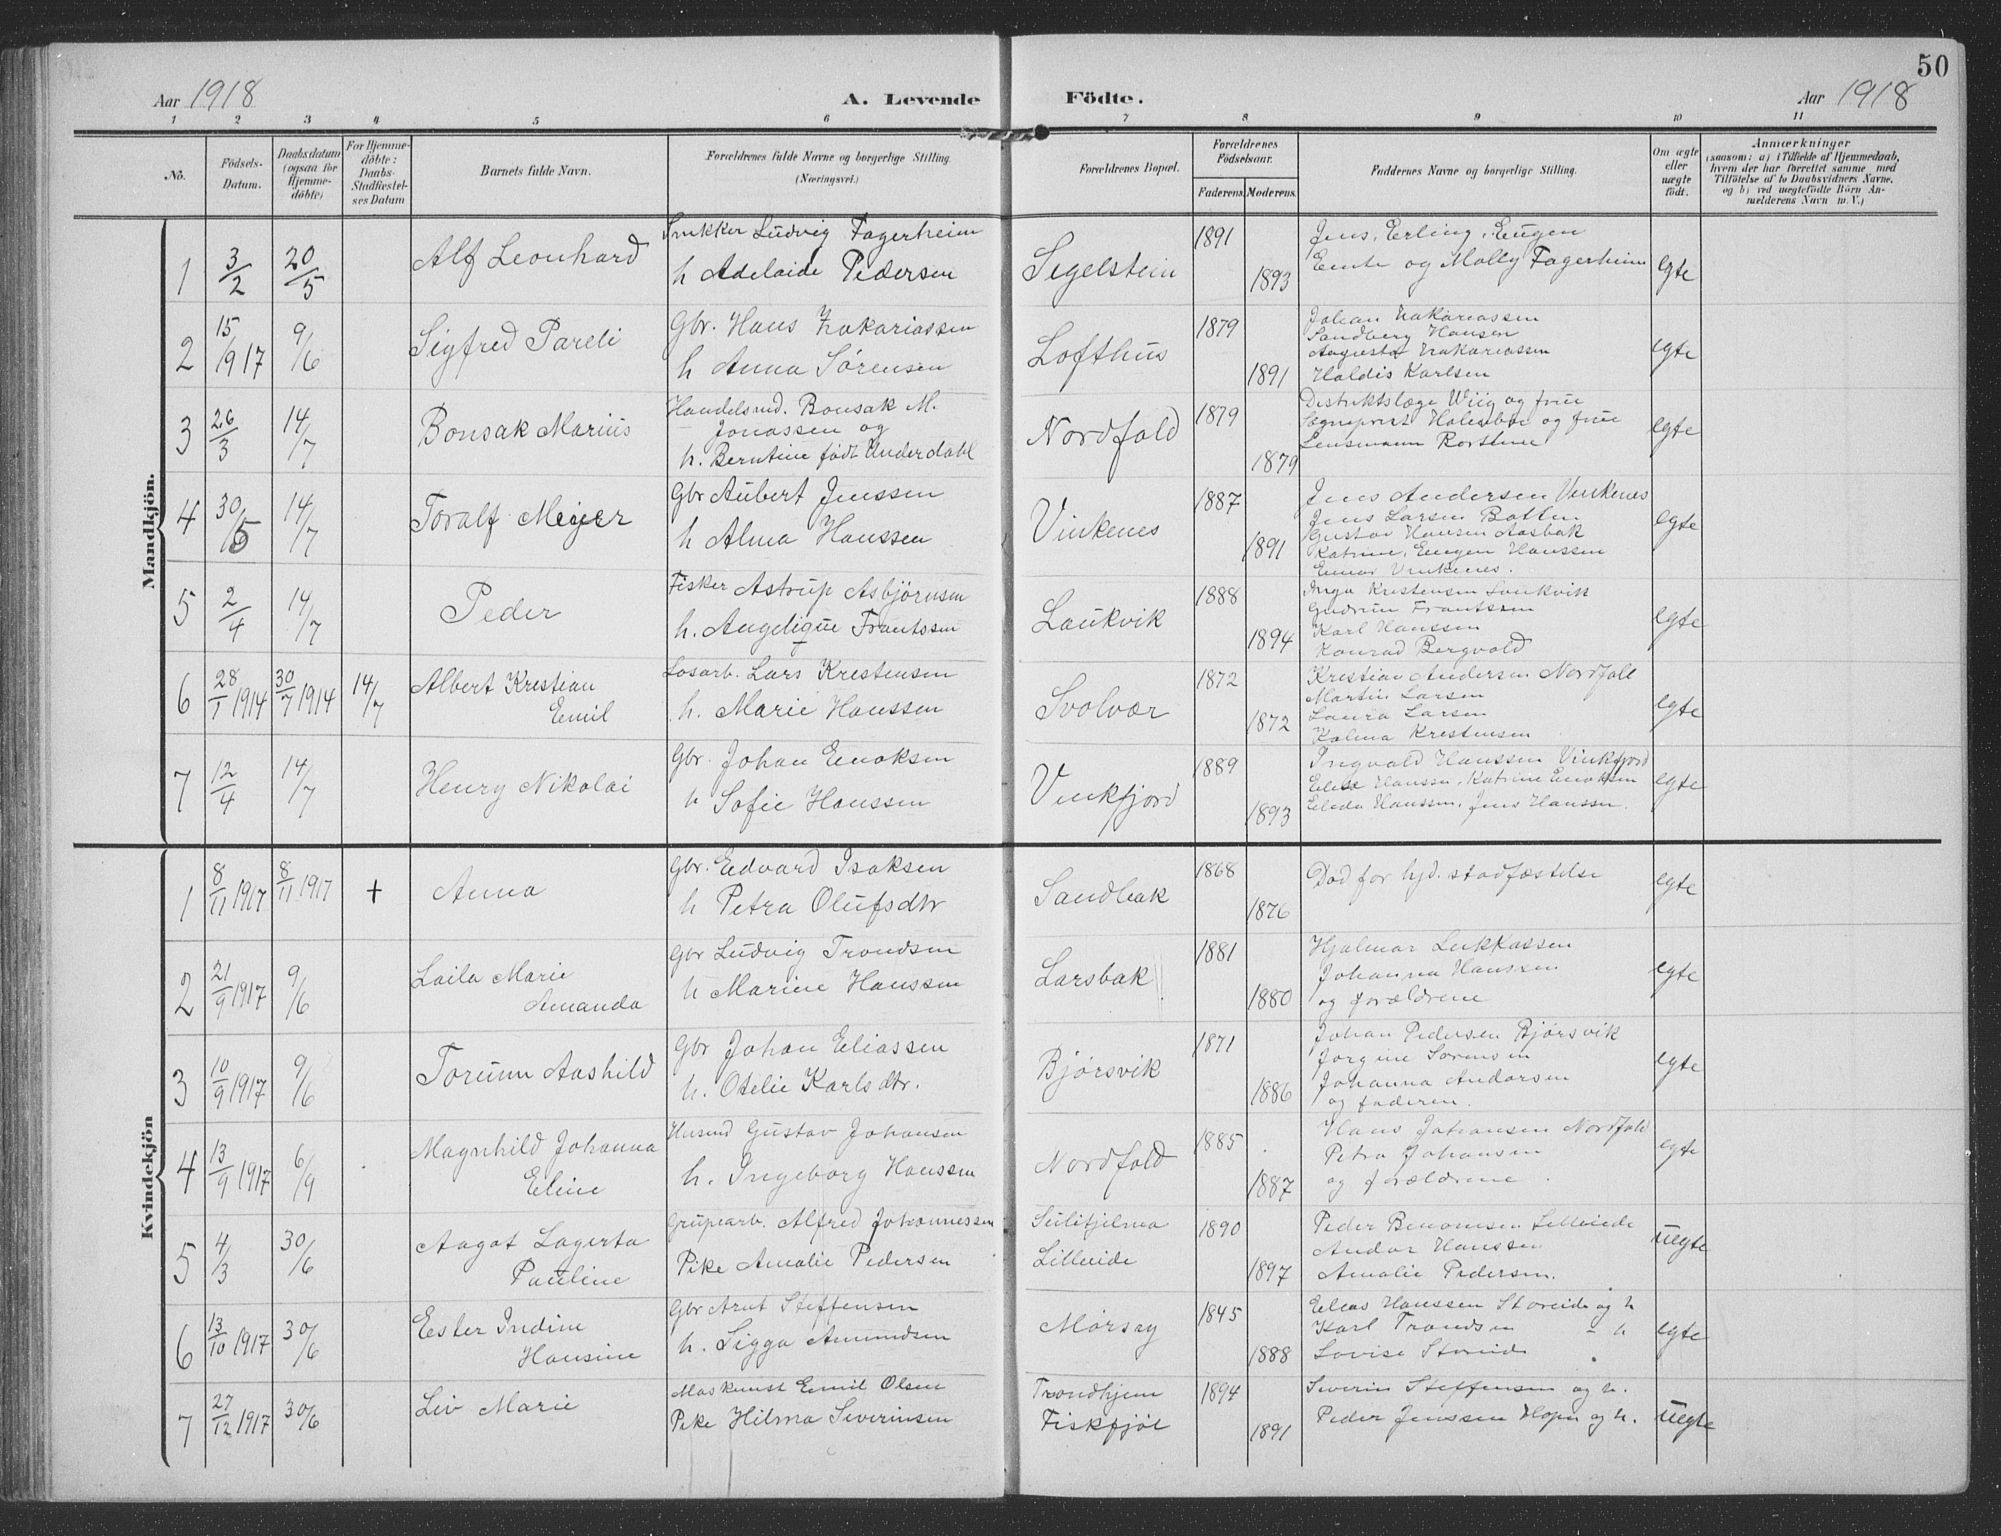 50
Aar 1918 A. Levende Födte. Aar 1918
1 2 3 4 5 6 7 8 9 10 11
No.
Födsels-
Datum.
Daabsdatum
(ogsaa for
Hjemme-
döbte)
For Hjemme-
döbte:
Daabs-
Stadfæstel-
ses Datum
Barnets fulde Navn.
Forældrenes fulde Navne og borgerlige Stilling.
(Næringsvei.)
Forældrenes Bopæl.
Forældrenes
Födselsaar.
Faderens. Moderens.
Faddernes Navne og borgerlige Stilling.
Om ægte
eller
uægte
födt.
Anmærkninger
(saasom: a) i Tilfælde af Hjemmedaab,
hvem der har forrettet samme, med
Tilföielse af to Daabsvidners Navne,
og b) ved uegtefödte Börn An-
melderens Navn m. V.)
Mandkjön.
1 3/2 20/5 Alf Leonhard
Snekker Ludvig Fagerheim
h Adelaide Pedersen
Segelstein 1891 1893
Jens, Erling, Eugen
Ente og Molly Fagerheim
egte
2 15/ 1917 9/6 Sigfred Pareli
Gbr. Hans Zakariassen
h Anna Sørensen
Lofthus 1879 1891
Johan Zakariassen
Sandberg Hansen
Augusta Zakariassen
Haldis Karlsen
egte
3 26/3 14/7 Bonsak Marius
Handelsmd. Bonsak M.
Jonassen og
h. Berntine født Underdahl
Nordfold 1879 1879
Distriktslæge Wiig og frue
Sogneprest og frue
Lensmann
egte
4 30/5 14/7 Toralf Meyer
Gbr Aubert Jenssen
h Alma Hanssen
Vinkenes 1887 1891
Jens Andersen Vinkenes
Jens Larsen Botten
Gustav Hansen Aasbak
Katrine, Eugen Hanssen
Einar Vinkenes.
egte
5 2/4 14/7 Peder
Fisker Astrup Asbjørnsen
h. Angelique Frantssen
Laukvik 1888 1894
Inga Kristensen Laukvik
Gudrun Frantssen
Karl Hanssen
Konrad Bergvold
egte
6 28/1 1914 30/7 1914 14/7 Albert Krestian
Emil
Losarb. Lars Krestensen
h. Marie Hanssen
Svolvær 1872 1872
Kristian Andersen Nordfold
Martin Larsen
Laura Larsen
Kalma Krestensen
egte
7 12/4 14/7 Henry Nikolai
Gbr. Johan Enoksen
h Sofie Hanssen
Vinkfjord 1889 1893
Ingvald Hanssen Vinkfjord
Elise Hanssen, Katrine Enoksen
Eleda Hanssen, Jens Hanssen.
egte
Kvindekjön
1 8/11 1917 8/11 1917 + Anna
Gbr. Edvard Isaksen
h Petra Olufsdtr
Sandbak 1868 1876
Død før hjd. stadfæstelse
egte
2 21/9 1917 9/6 Laila Marie
Amanda
Gbr Ludvig Trondsen
h Marine Hanssen
Larsbak 1881 1880
Hjalmar Lukkassen
Johanna Hanssen
og forældrene
egte
3 10/9 1917 9/6 Torunn Aashild
Gbr Johan Eliassen
h. Otelie Karlsdtr.
Bjørsvik 1871 1886
Johan Pedersen Bjørsvik
Jørgine Sørensen
Johanna Andersen
og faderen.
egte
4 13/9 1917 6/9 Magnhild Johanna
Eline
Husmd Gustav Johansen
h. Ingeborg Hanssen
Nordfold 1885 1887
Hans Johansen Nordfold
Petra Johansen
og forældrene.
egte
5 4/3 30/6 Aagot Lagerta
Pauline
Grupearb. Alfred Johannessen
Pike Amalie Pedersen
Sulitjelma
Lilleeide
1890 1897
Peder Benonisen Lilleeide
Andor Hanssen
Amalie Pedersen.
uegte
6 13/10 1917 30/6 Ester Indine
Hansine
Gbr Arnt Steffensen
h. Sigga Amundsen
Mørsry 1845 1888
Elias Hanssen Storeide og h
Karl Trondsen – h
Lovise Storeide
egte
7 27/12 1917 30/6 Liv Marie
Maskinist Emil Olsen
Pike Hilma Severinsen
Trondhjem
Fiskfjøl
1894 1891
Severin Steffensen og h.
Peder Jenssen Hopn og h.
uegte